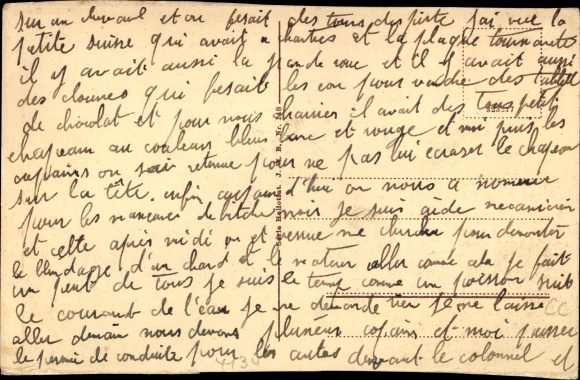 sur un cheval et on fesait des tours de piste j'ai vue la
petite suisse qui avait charties et la plaque tournante
il y avait aussi la grande roue et il y avait aussi
des clowes qui fesait les con pour vendre des tablett
de chocolat et pour nous il avait des tous petit
chapeau au couleur bleu blanc et rouge et puis les
copains on retenue pour ne pas lui ecraser le chapeau
sur la tête. enfin aujourd'hui on nous a nommer
pour les je suis aide mecanicien
et cette après midi on et venue me chercher pour demonter
le blindage d'un chard et le moteur aller comme cela je fait
un peut de tous je suis le temp comme un poisson suit
le courant de l'eau je ne demande rien je me laisse
aller demain nous devons plusieur copains et moi passer
le permie de conduite pour les autos devant le colonnel et
Série Reliotin J. B. Nr. 148